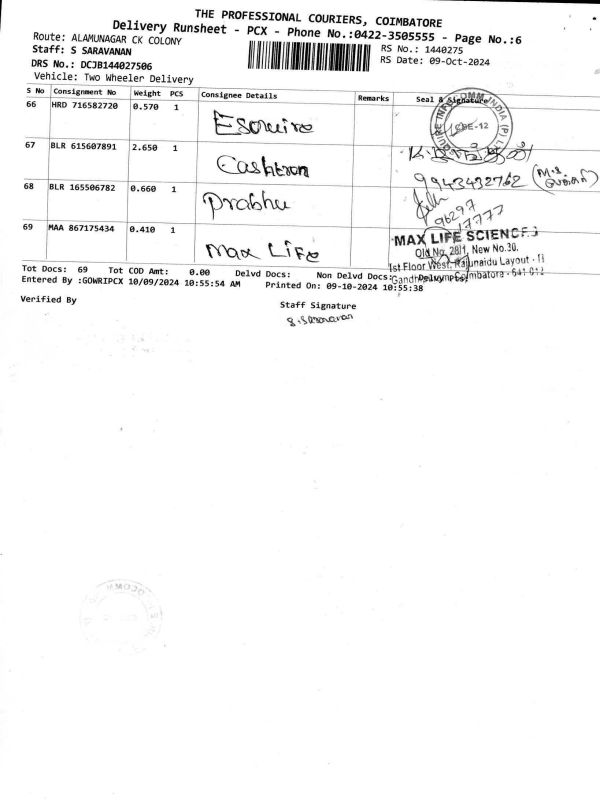 THE PROFESSIONAL COURIERS, COIMBATORE
Delivery Runsheet - PCX - Phone No.:0422-3505555 - Page No.:6
Route: ALAMUNAGAR CK COLONY
RS No.: 1440275
Staff: S SARAVANAN
RS Date: 09-Oct-2024
DRS No.: DCJB144027506
Vehicle: Two Wheeler Delivery
S No Consignment No Weight PCS Consignee Details Remarks Seal & Signature
66 HRD 716582720 0.570 1 Esquire
CBE-12
67 BLR 615607891 2.650 1 Cashtron
9943432762
68 BLR 165506782 0.660 1 Prabhu
96297
17777
69 MAA 867175434 0.410 1 Max Life
MAX LIFE SCIENCES
Old No. 28/1, New No.30.
1st Floor West, Rajunaidu Layout - II
Coimbatore - 641 012
Tot Docs: 69 Tot COD Amt: 0.00 Delvd Docs: Non Delvd Docs:
Entered By :GOWRIPCX 10/09/2024 10:55:54 AM Printed On: 09-10-2024 10:55:38
Verified By
Staff Signature
S. Saravanan